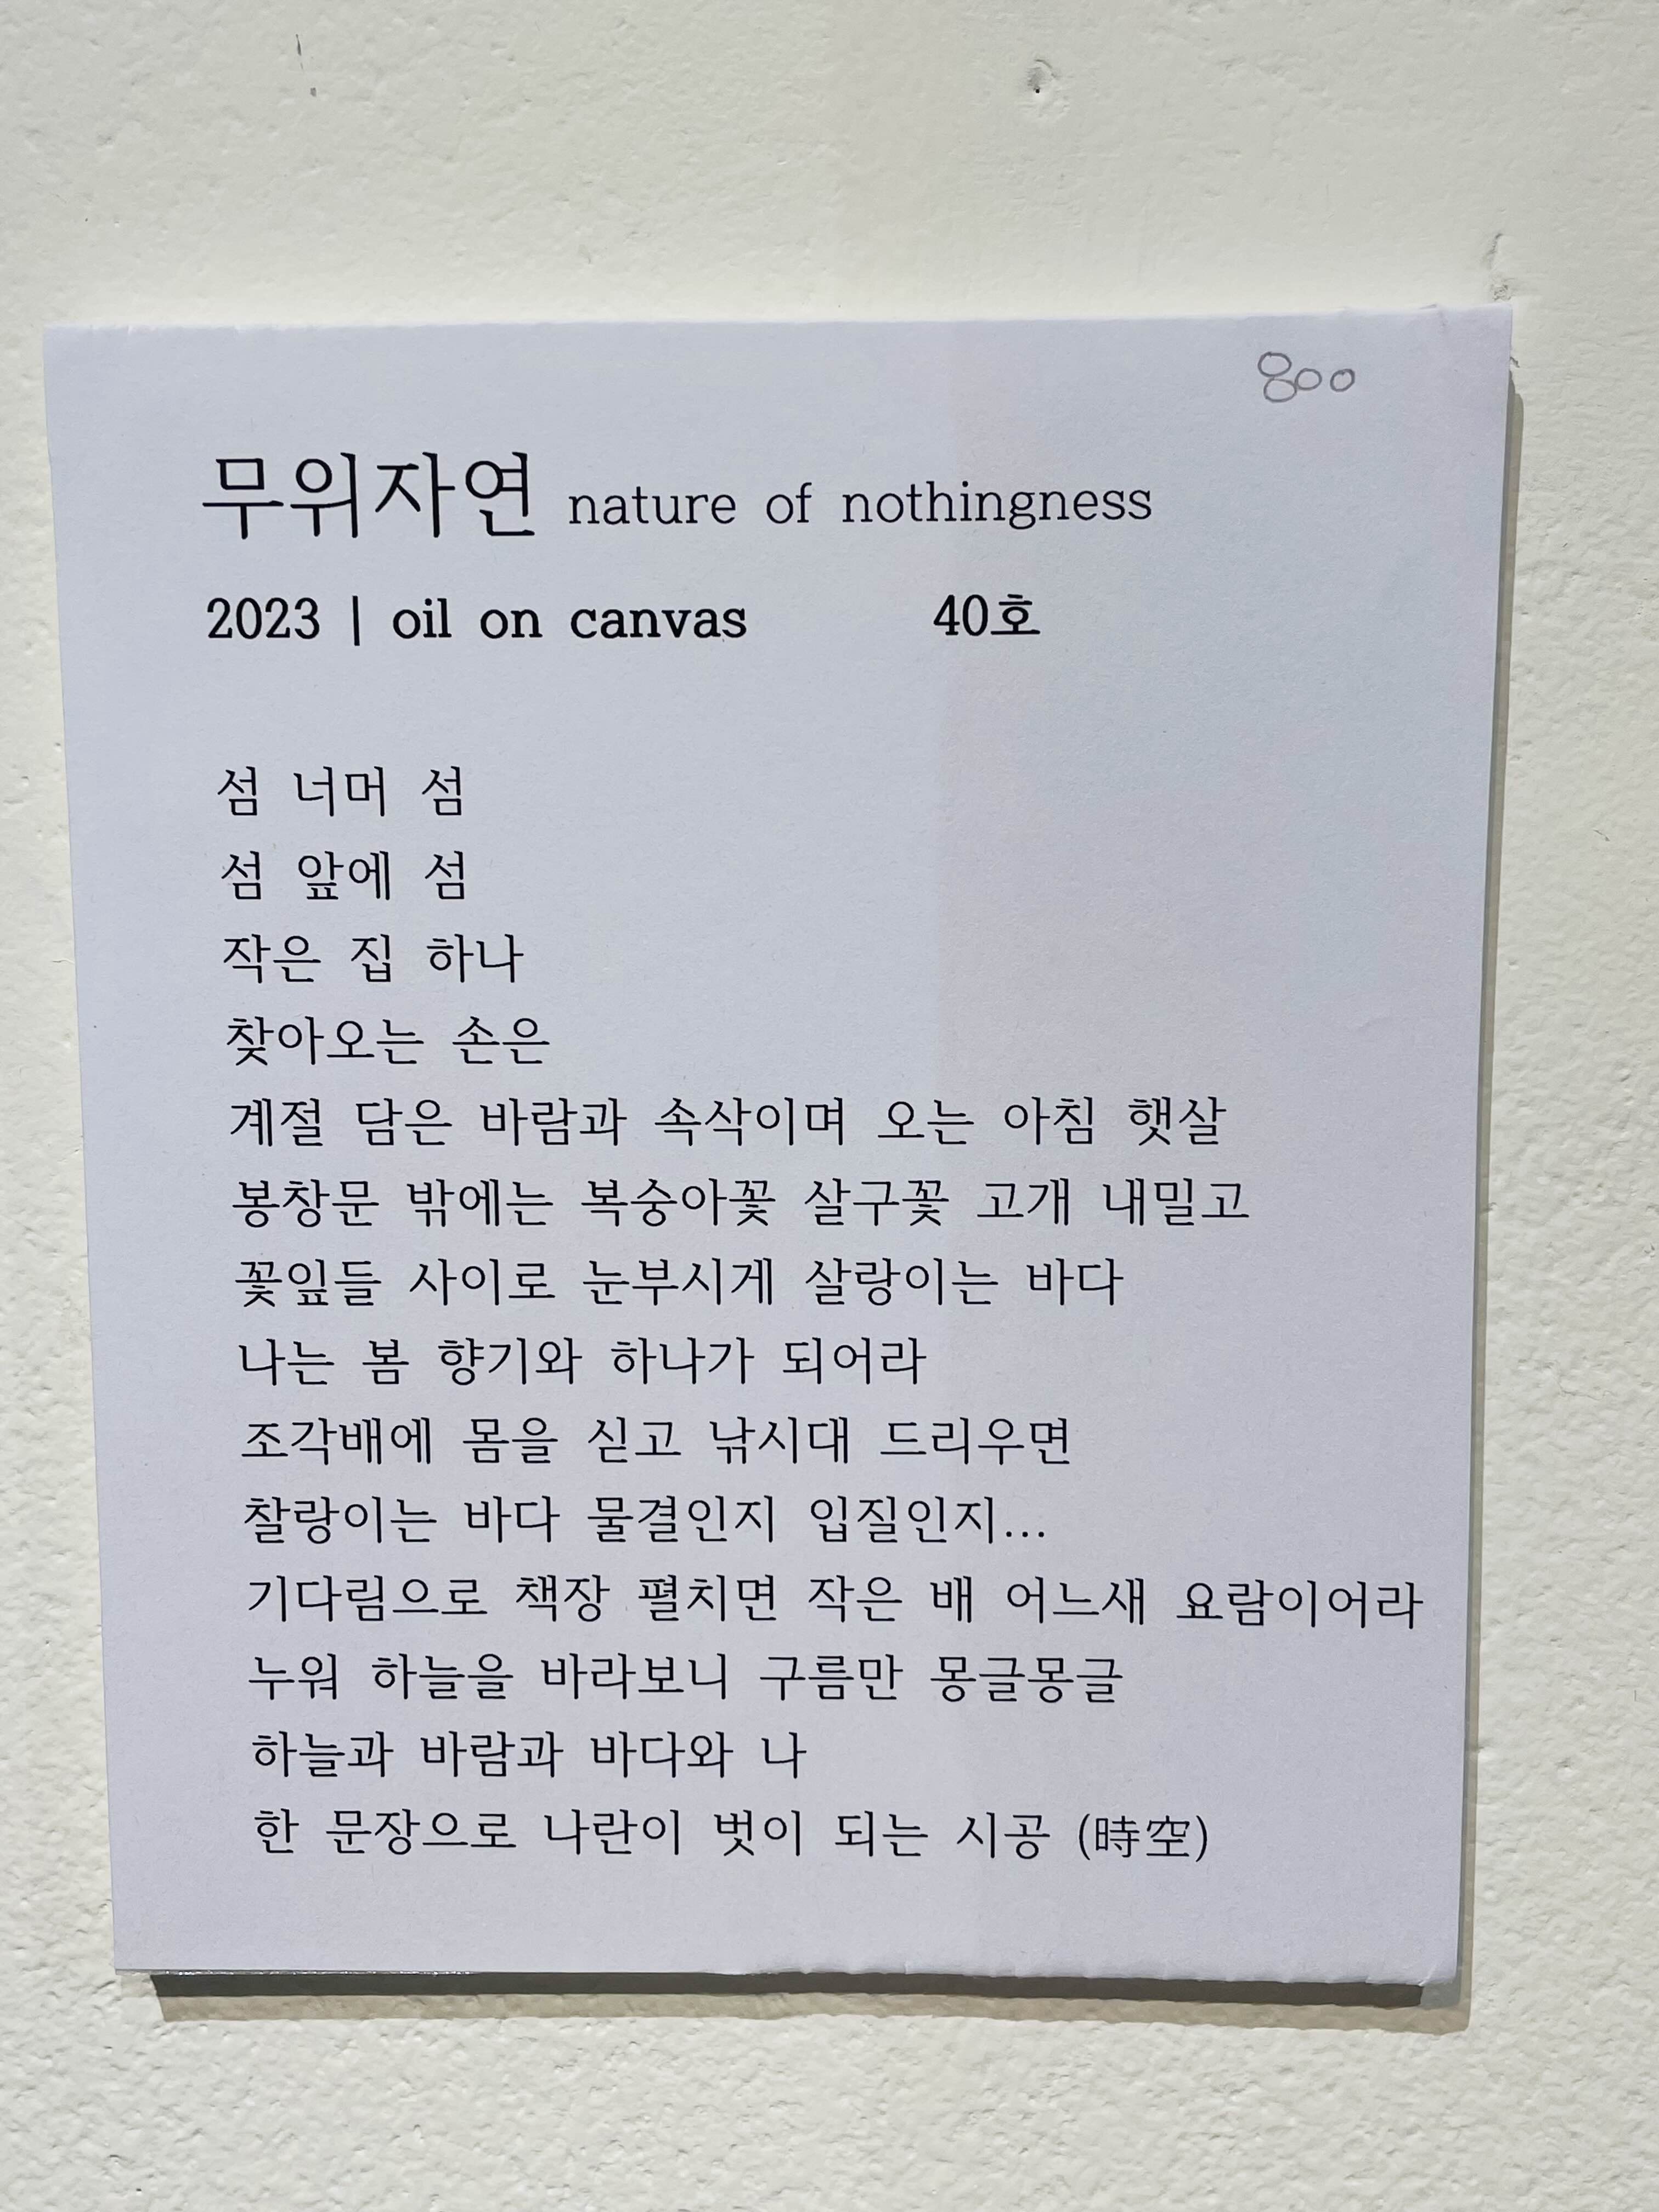 800
무위자연 nature of nothingness
2023 | oil on canvas 40호
섬 너머 섬
섬 앞에 섬
작은 집 하나
찾아오는 손은
계절 담은 바람과 속삭이며 오는 아침 햇살
봉창문 밖에는 복숭아꽃 살구꽃 고개 내밀고
꽃잎들 사이로 눈부시게 살랑이는 바다
나는 봄 향기와 하나가 되어라
조각배에 몸을 싣고 낚시대 드리우면
찰랑이는 바다 물결인지 입질인지...
기다림으로 책장 펼치면 작은 배 어느새 요람이어라
누워 하늘을 바라보니 구름만 몽글몽글
하늘과 바람과 바다와 나
한 문장으로 나란이 벗이 되는 시공 (時空)